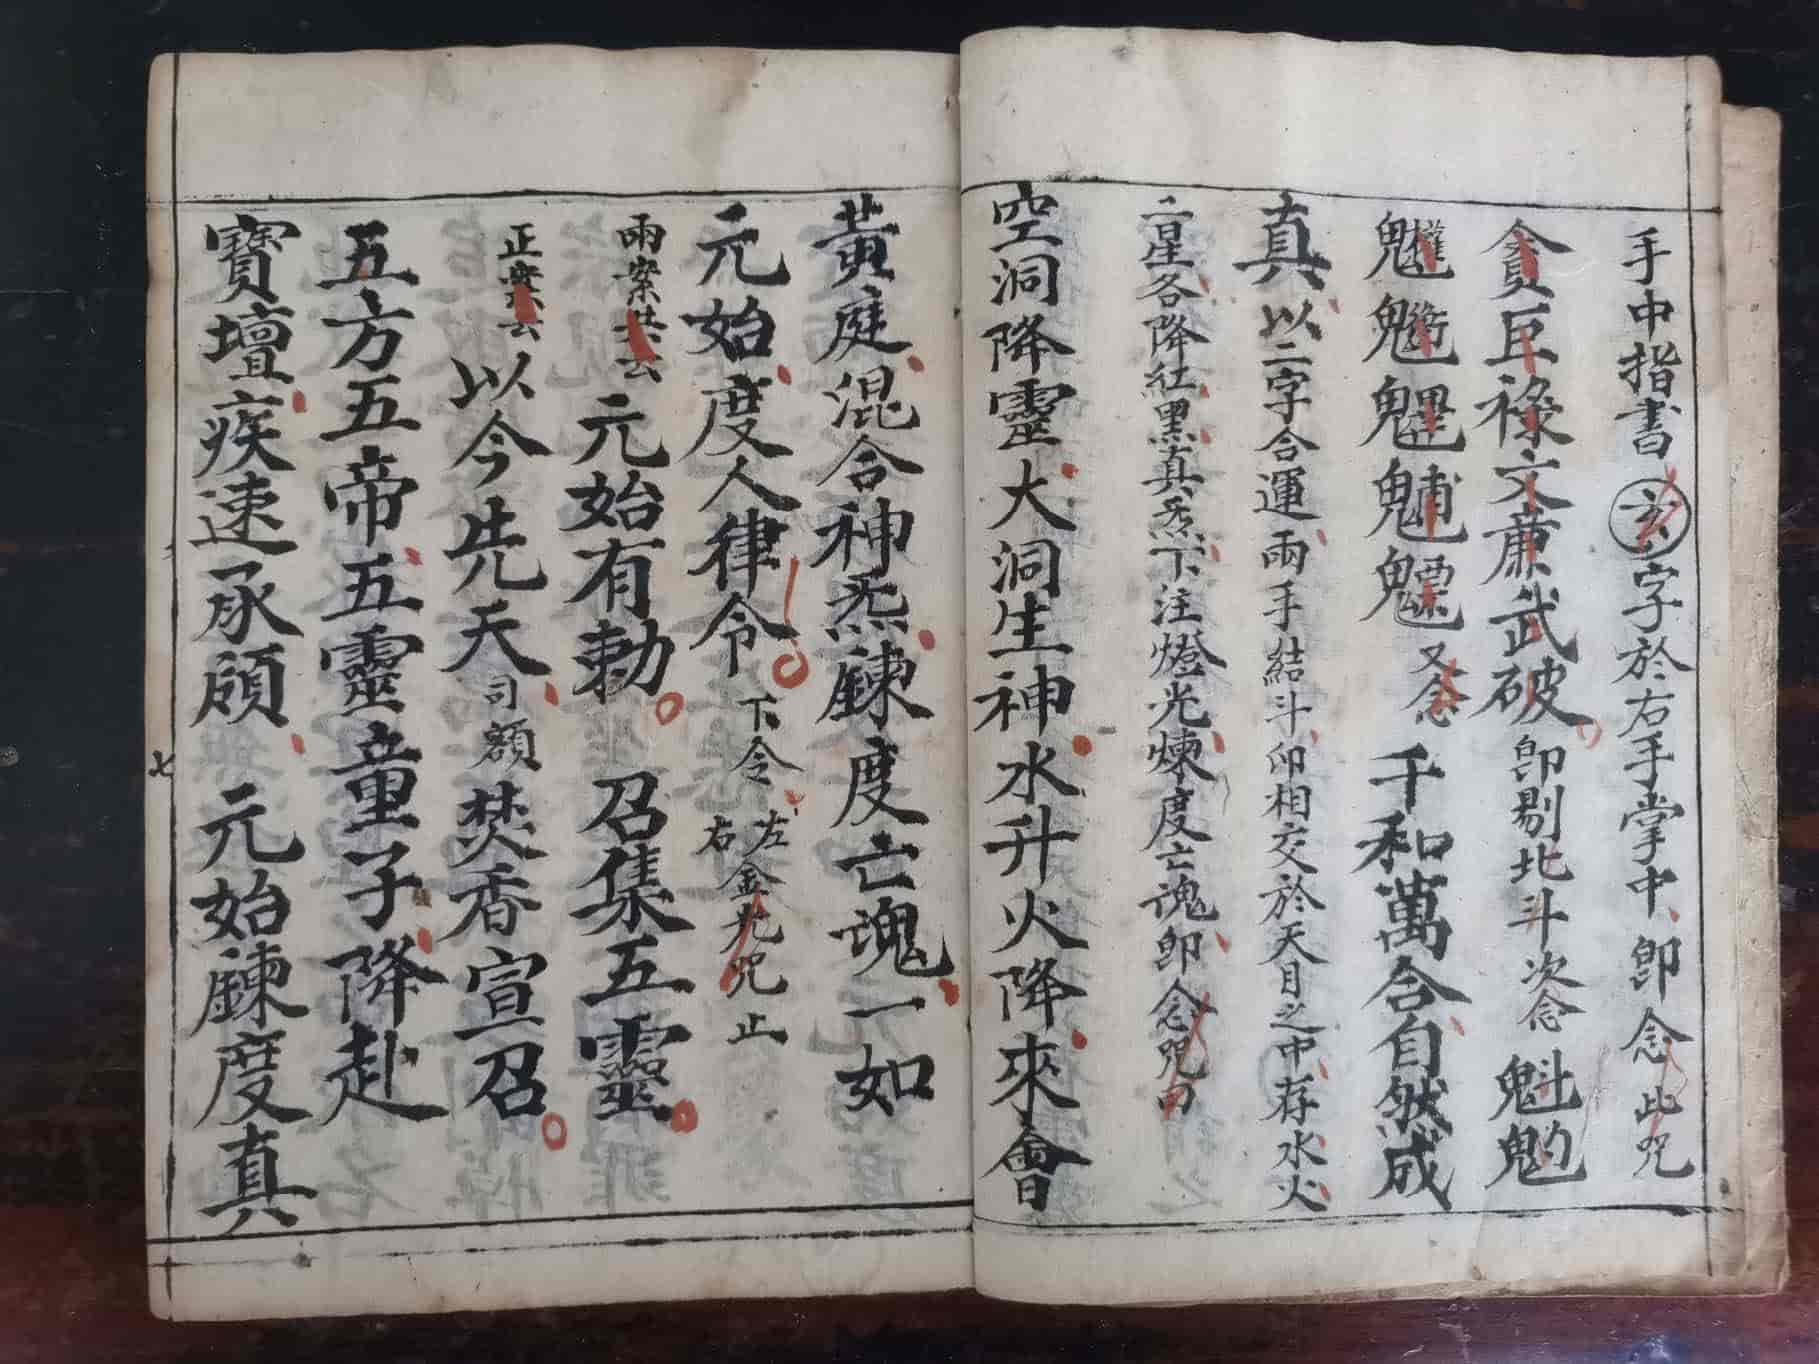 手中指書玄字於右手掌中卽念此咒
貪巨祿文廉武破卽剔北斗次念魁𩲃
䰢魓䰨魒又念千和萬合自然成
真以二字合運兩手結斗印相交於天目之中存水火
二星各降紅黑真炁下注燈光煉度亡魂卽念咒曰
空洞降靈大洞生神水升火降來會
黃庭混合神炁鍊度亡魂一如
元始度人律令下令左右金光咒止
兩案共云元始有勅召集五靈
正案云以今先天司額焚香宣召
五方五帝五靈童子降赴
寶壇疾速承頋元始鍊度真
七